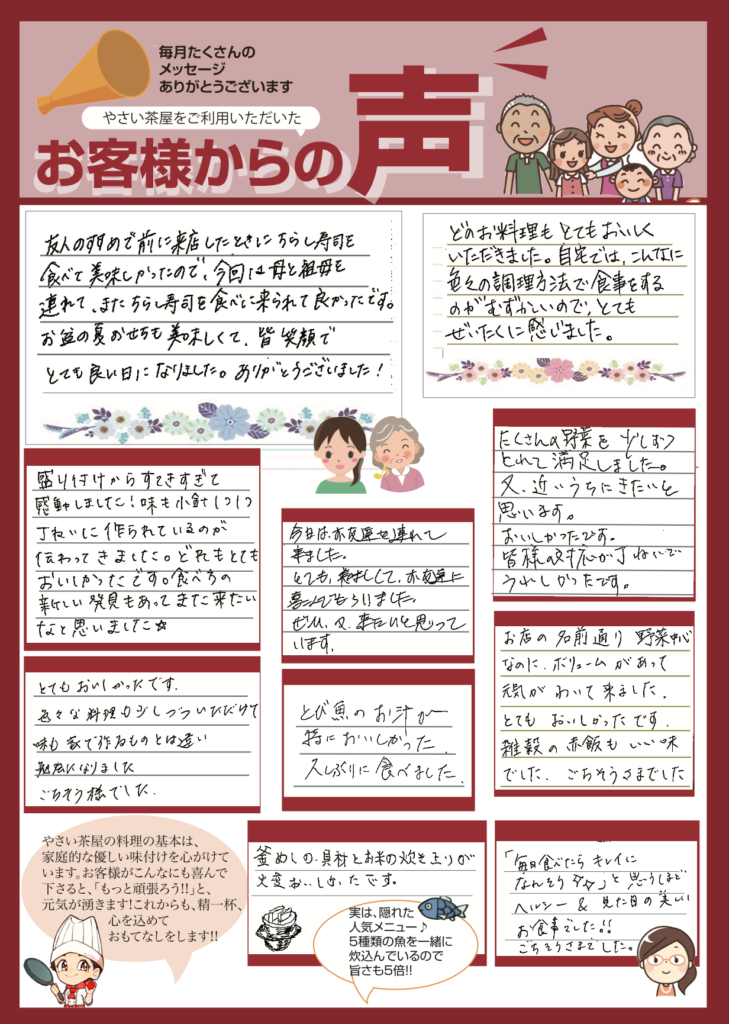 毎月たくさんの
メッセージ
ありがとうございます
やさい茶屋をご利用いただいた
お客様からの声
友人のすすめで前に来店したときにちらし寿司を
食べて美味しかったので、今回は母と祖母を
連れて、またちらし寿司を食べに来られて良かったです。
お盆の夏おせちも美味しくて、皆笑顔で
とても良い日になりました。ありがとうございました!
どのお料理もとてもおいしく
いただきました。自宅では、こんなに
色々の調理方法で食事をする
のがむずかしいので、とても
ぜいたくに感じました。
盛り付けからすてきすぎて
感動しました!味も小鉢1つ1つ
丁ねいに作られているのが
伝わってきました。どれもとても
おいしかったです。食べ方の
新しい発見もあってまた来たい
なと思いました☆
今日は、お友達を連れて
来ました。
とても、おいしくて、お友達に
喜んでもらいました。
ぜひ、又、来たいと思って
います。
たくさんの野菜を少しずつ
とれて満足しました。
又、近いうちにきたいと
思います。
おいしかったです。
皆様の対応が丁ねいで
うれしかったです。
とてもおいしかったです。
色々な料理も少しづついただけて
味も家で作るものとは違い
勉強になりました
ごちそう様でした。
とび魚のお汁が
特においしかった
久しぶりに食べました。
お店の名前通り野菜中心
なのに、ボリュームがあって
元気がわいて来ました。
とてもおいしかったです。
雑穀の赤飯もいい味
でした。ごちそうさまでした
やさい茶屋の料理の基本は、
家庭的な優しい味付けを心がけて
います。お客様がこんなにも喜んで
下さると、「もっと頑張ろう!!」と、
元気が湧きます!これからも、精一杯、
心を込めて
おもてなしをします!!
釜めしの具材とお米の炊き上りが
大変おいしかったです。
実は、隠れた
人気メニュー♪
5種類の魚を一緒に
炊込んでいるので
旨さも5倍!!
「毎日食べたらキレイに
なれそうダダ」と思うほど
ヘルシー&見た目の美しい
お食事でした!!
ごちそうさまでした。